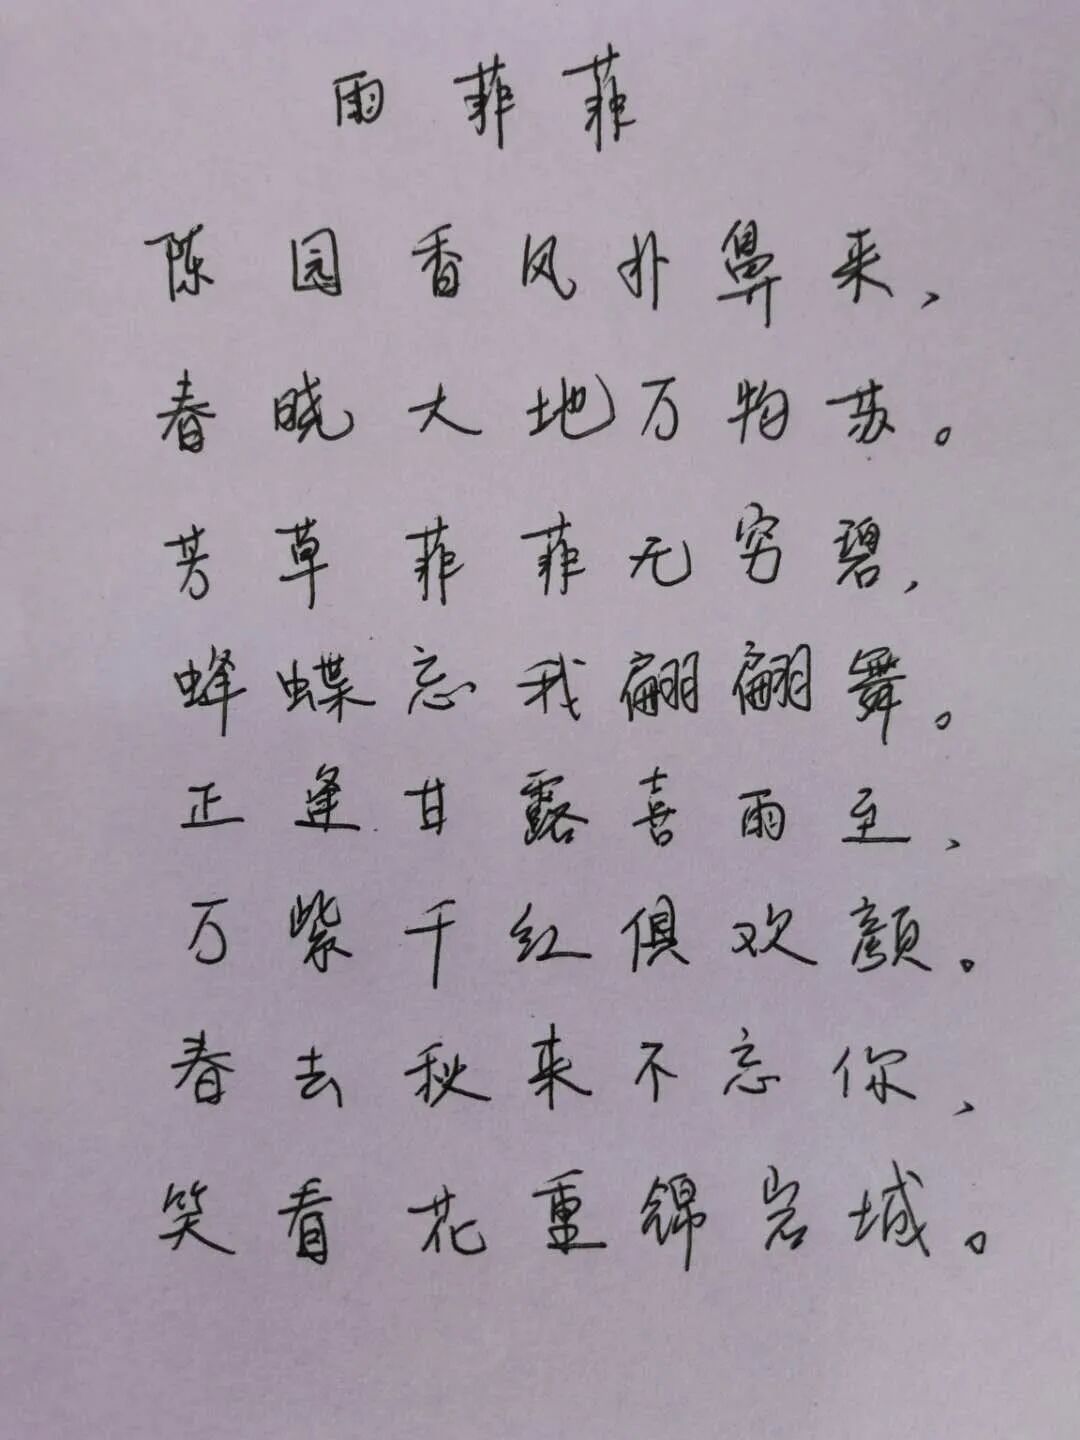 雨菲菲
陈园香风扑鼻来、
春晓大地万物苏。
芳草菲菲无穷碧,
蜂蝶忘我翩翩舞。
正逢甘露喜雨至、
万紫千红俱欢颜。
春去秋来不忘你、
笑看花重锦岩城。